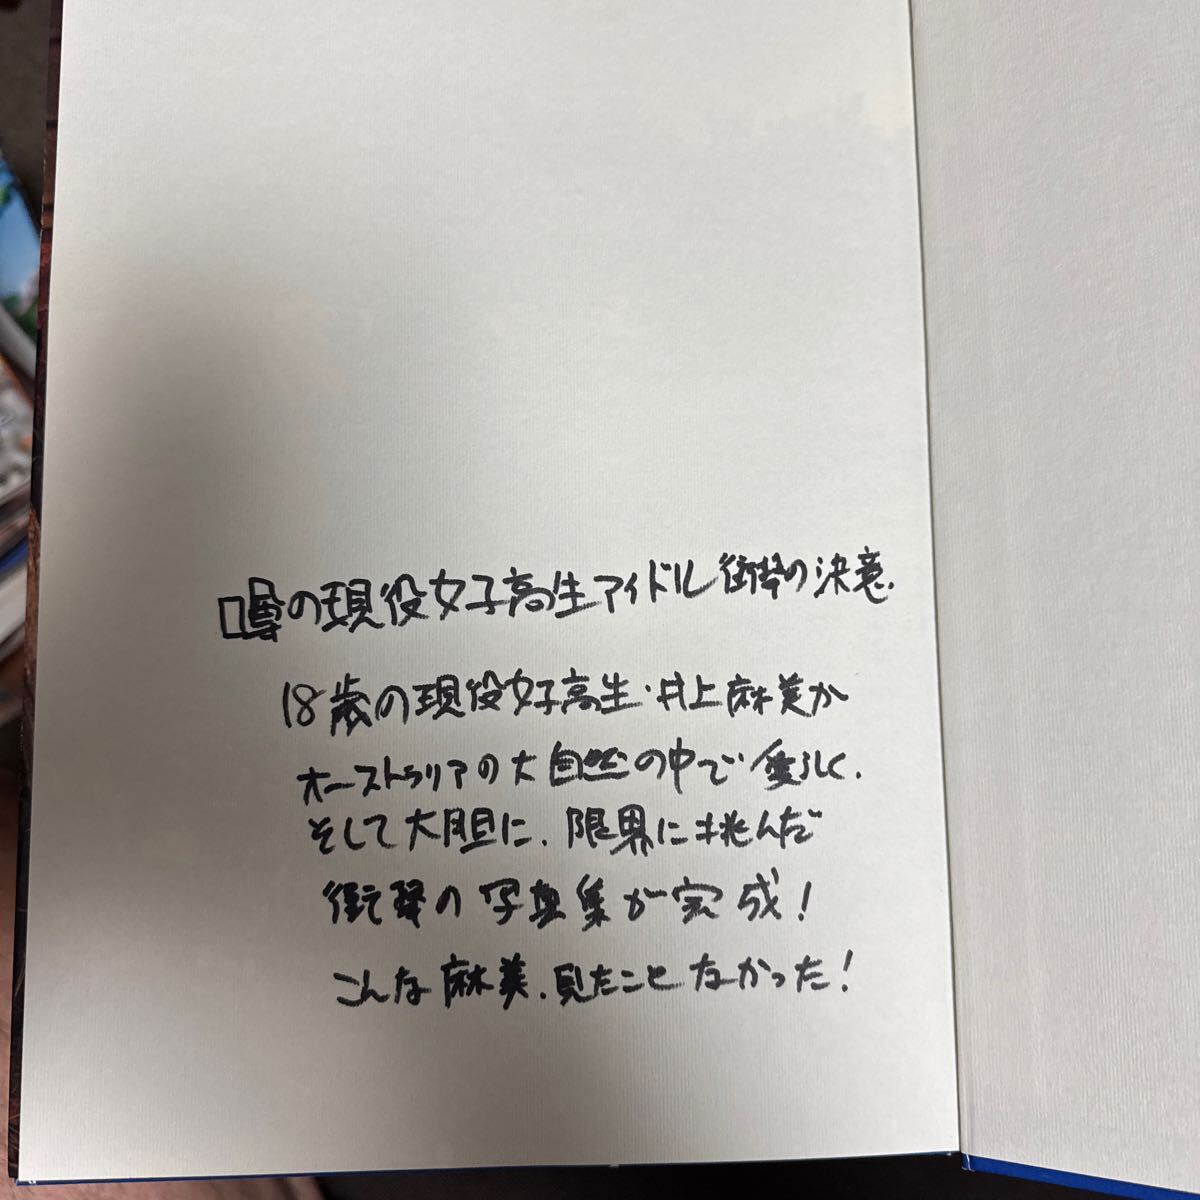 噂の現役女子高生アイドル衝撃の決意.
18歳の現役女子高生・井上麻美が
オーストラリアの大自然の中で愛らしく、
そして大胆に、限界に挑んだ
衝撃の写真集が完成!
こんな麻美、見たことなかった!